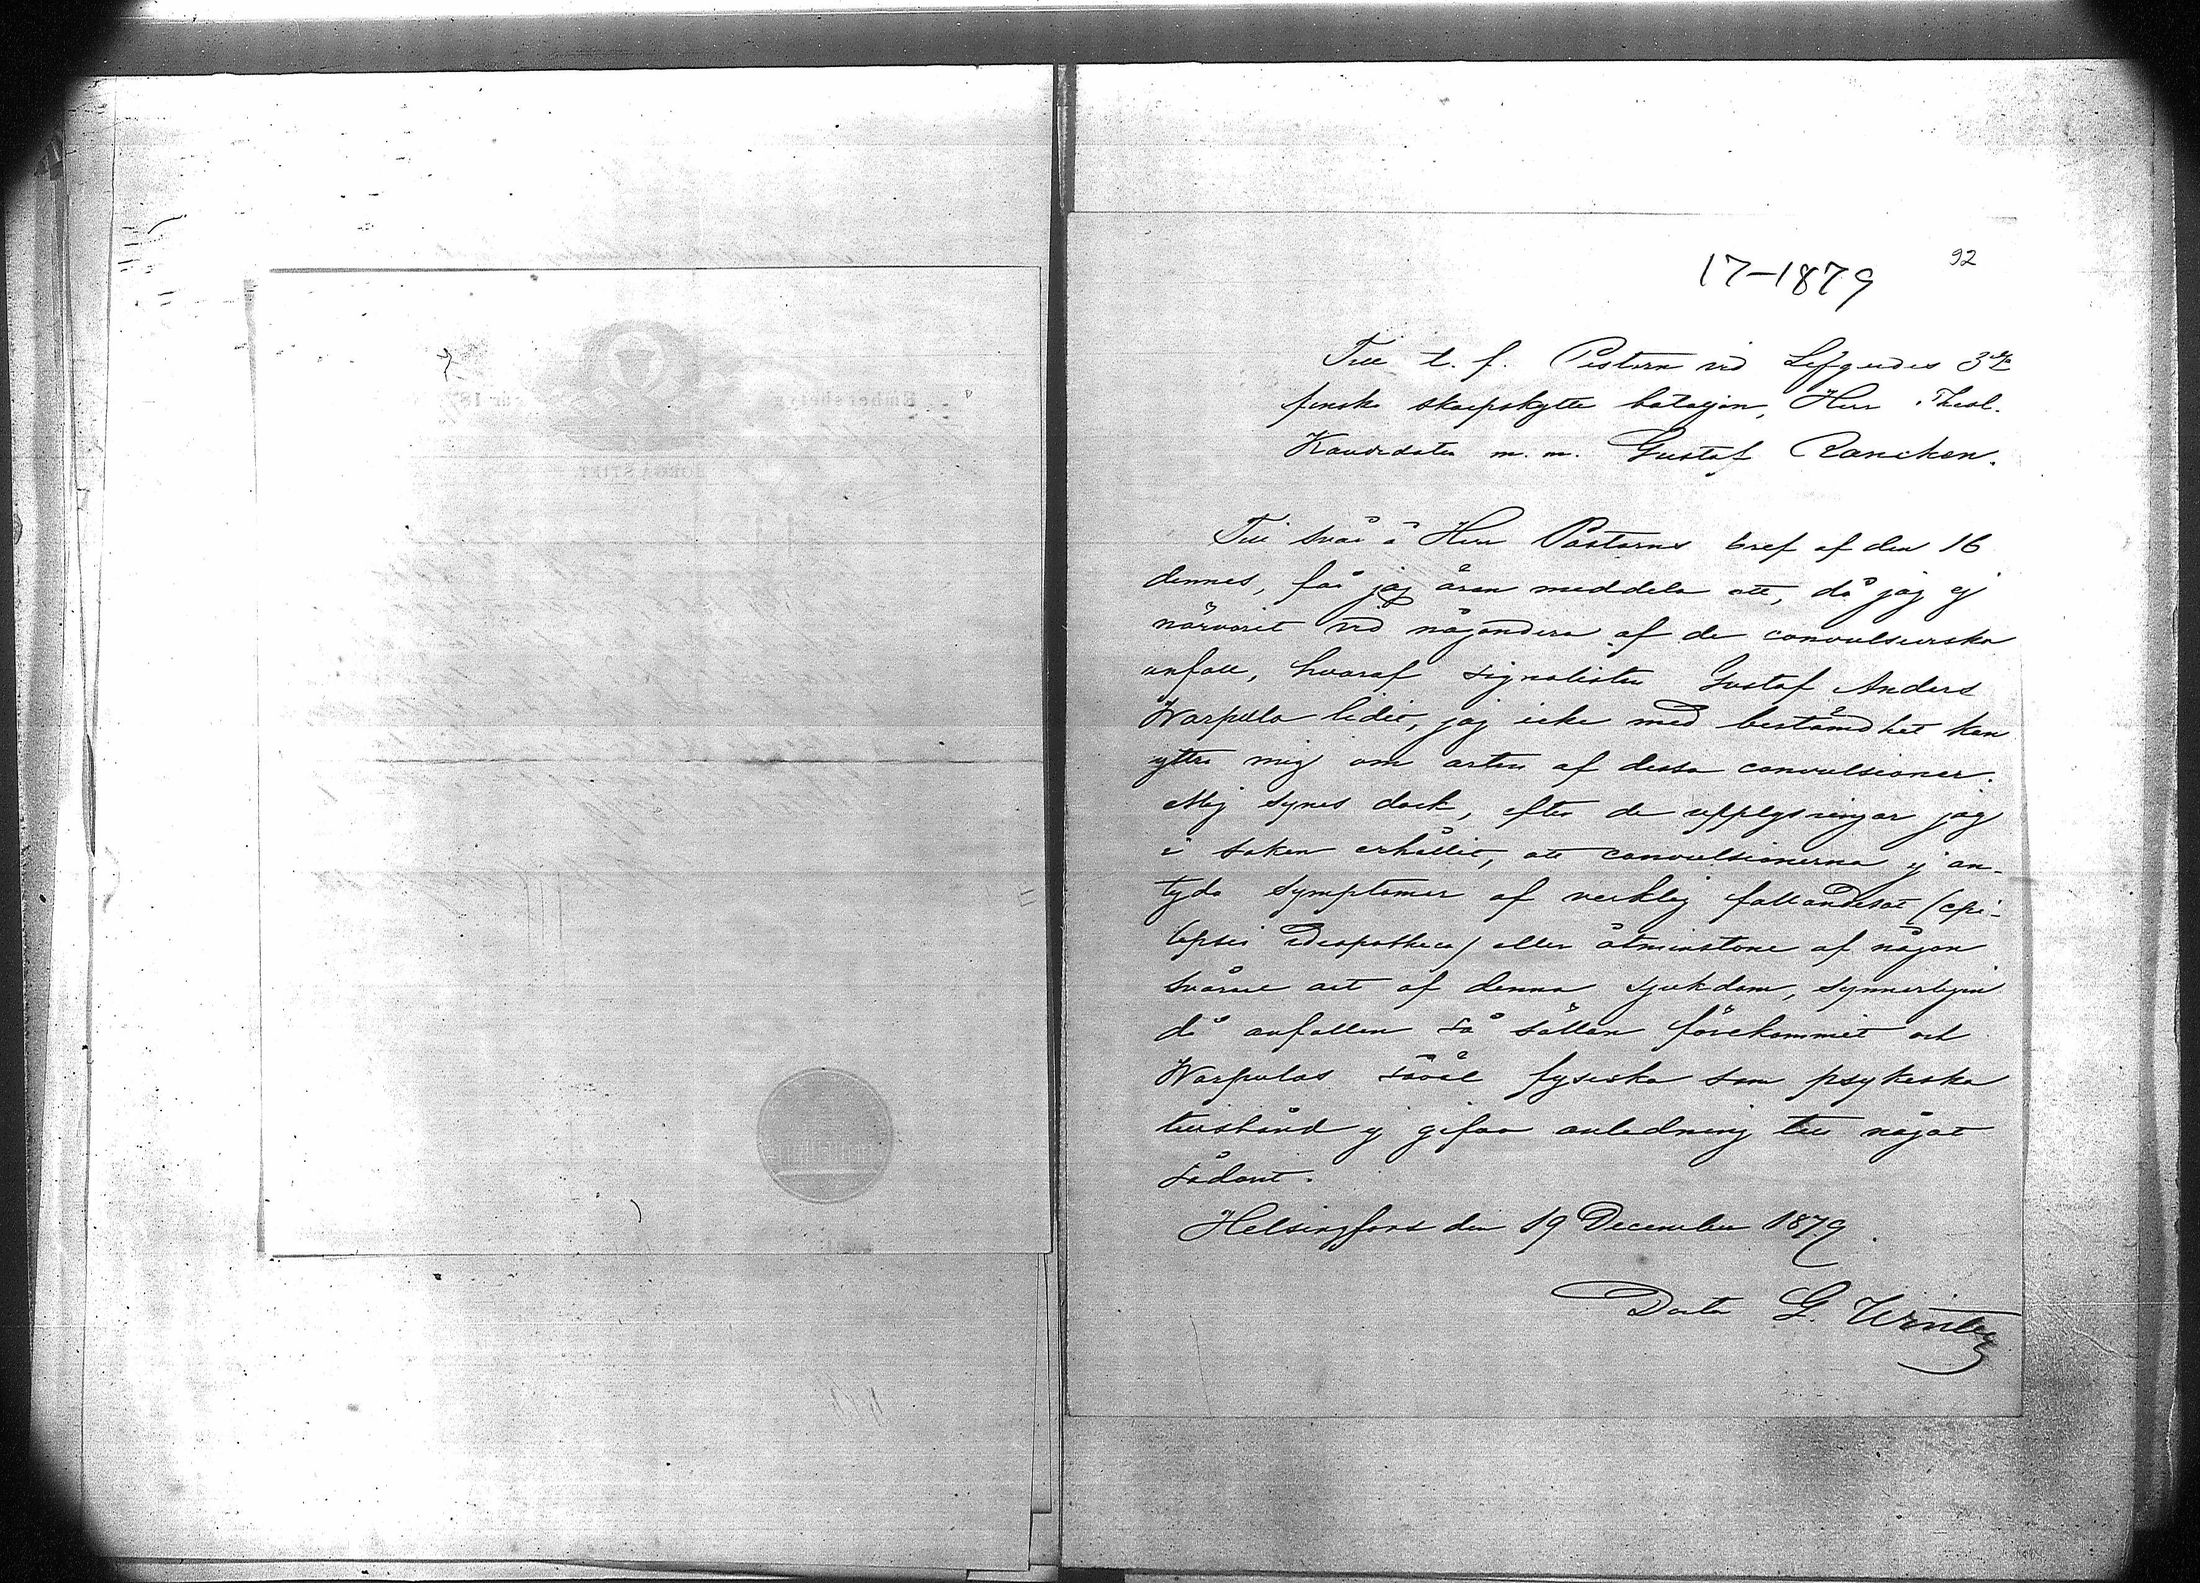 92
17-1879
Till t. f. Pastorn vid Lifgardes 3dje
finska skarpskytte bataljon, Herr Theol.
Kandidaten m. m. Gustaf Rancken.
Till svar å Herr Pastorns bref af den 16
dennes, får jag äran meddela att, då jag ej
närvarit vid någondera af de convulsiviska
anfall, hvaraf signalisten Gustaf Anders
Warpula lidit, jag icke med bestämdhet kan
yttra mig om arten af dessa convulsioner.
Mig synes dock, efter de upplysningar jag
i saken erhållit, att convulsionerna ej an-
tyda symptomer af verklig fallandesot (epi-
lepsia idiopathica) eller åtminstone af någon
svårare art af denna sjukdom, synnerligen
då anfallen så sällan förekommit och
Warpulas såväl fysiska som psykiska
tillstånd ej gifva anledning till något
sådant.
Helsingfors den 19 December 1879.
G. Winter